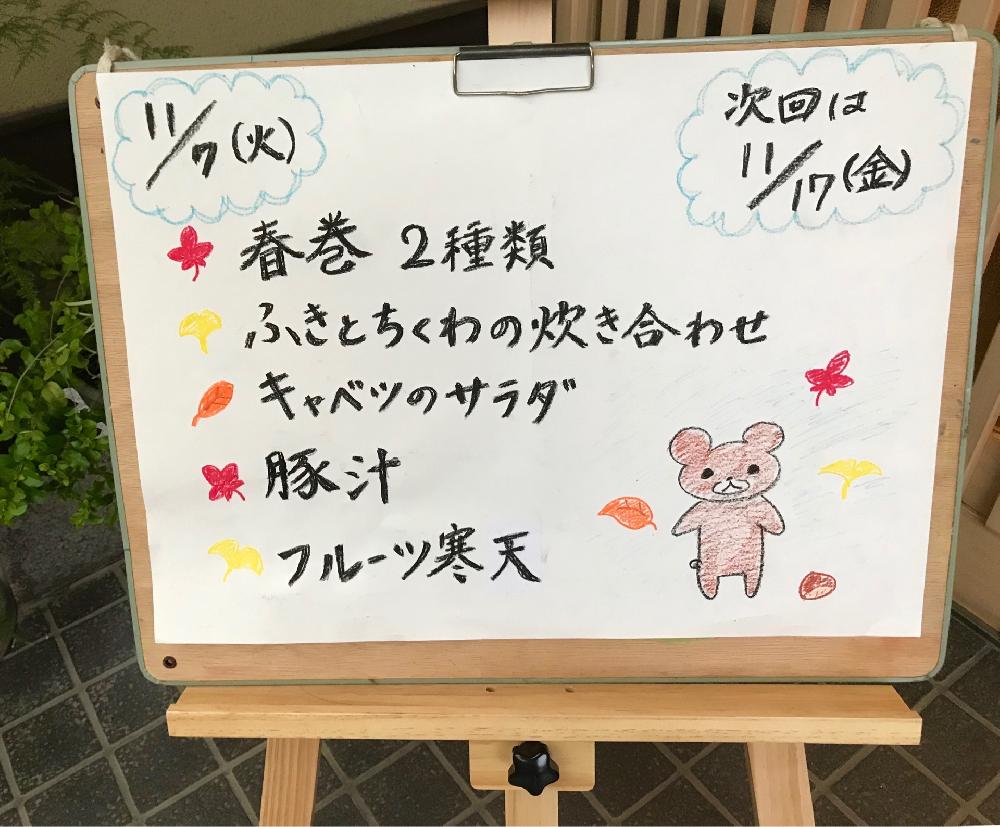 11/7(火)
次回は
11/17(金)
春巻 2種類
ふきとちくわの炊き合わせ
キャベツのサラダ
豚汁
フルーツ寒天